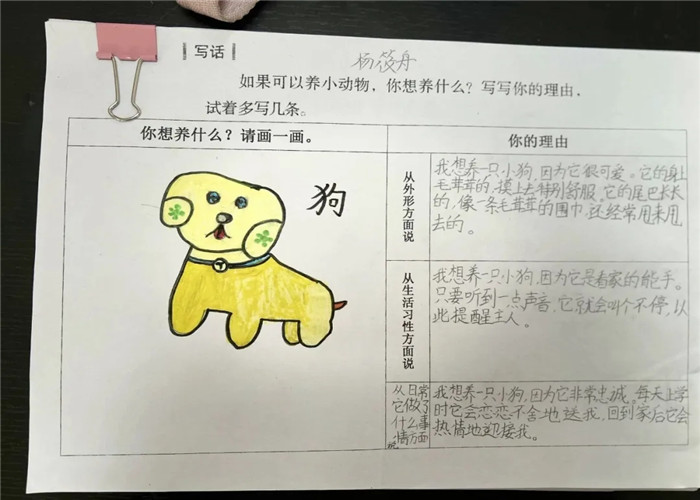 写话
杨筱舟
如果可以养小动物，你想养什么？写写你的理由，
试着多写几条。
你想养什么？请画一画。
你的理由
狗
从外形方面说
我想养一只小狗,因为它很可爱。它的身上
毛茸茸的,摸上去特别舒服。它的尾巴长长
的,像一条毛茸茸的围巾,还经常甩来甩
去的。
从生活习性方面说
我想养一只小狗,因为它是看家的能手。
只要听到一点声音,它就会叫个不停,以
此提醒主人。
从日常
它做了
什么事
情方面
说
我想养一只小狗,因为它非常忠诚。每天上学
时它会恋恋不舍地送我,回到家后它会
热情地迎接我。